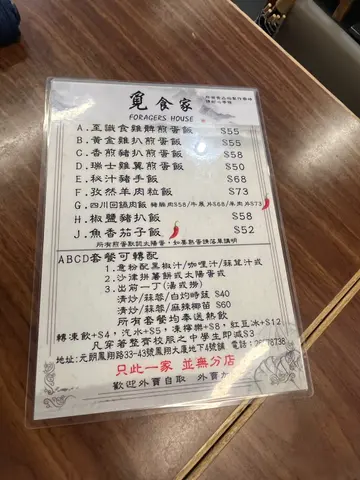 覓食家
FORAGERS HOUSE
A.至識食雞髀煎蛋飯 $55
B.黃金雞扒煎蛋飯 $55
C.香煎豬扒煎蛋飯 $58
D.瑞士雞翼煎蛋飯 $50
E.秘汁豬手飯 $68
F.孜然羊肉粒飯 $73
G.四川回鍋肉飯 豬腩肉$58/牛展片$68/羊肉片$73
H.椒鹽豬扒飯 $58
J.魚香茄子飯 $52
所有煎蛋默認太陽蛋，如果熟蛋請落單講明
ABCD套餐可轉配
1.意粉配黑椒汁/咖喱汁/蒜茸汁或
2.沙律拱薯餅或太陽蛋或
3.出前一丁(湯或撈)
清炒/蒜蓉/白灼時蔬 $40
清炒/蒜蓉/麻辣椰菜 $60
所有套餐均奉送熱飲
轉凍飲+$4，汽水+$5，凍檸樂+$8，紅豆冰+$12
凡穿著整齊校服之中學生即減$3
地址:元朗鳳翔路33-43號鳳翔大廈地下4號舖 電話:
只此一家 並無分店
歡迎外賣自取 外賣